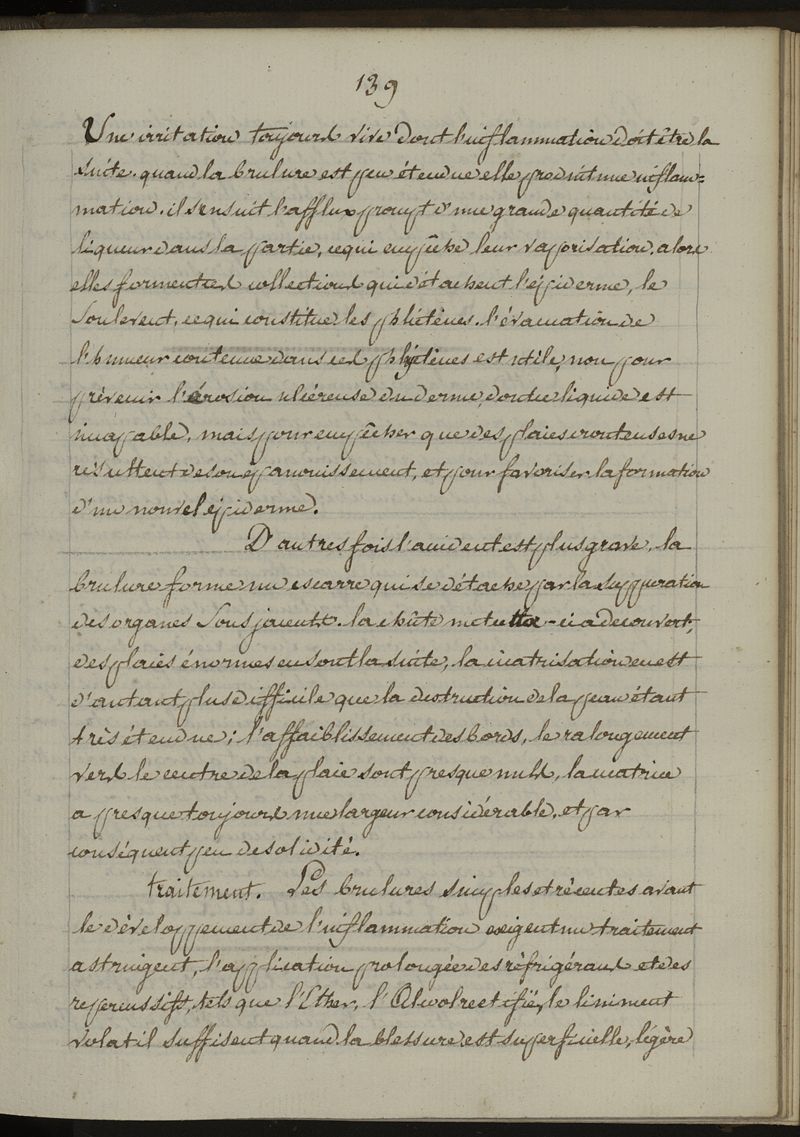 139
Une irritation toujours vive dont l'inflammation doit être la
suite. quand la brulure est peu étendue elle produit une inflam=
mation. il s'ensuit l'afflux prompt d'une grande quantité de
liqueur dans la partie, ce qui empêche leur vaporisation. alors
elles forment ces collections qui détachent l'épiderme, le
soulevent, ce qui constitue les phlictènes. l'évacuation de
l'humeur contenue dans ces phlyctènes est utile, non pour
prévenir l'érosion ulcéreuse du derme, dont ce liquide est
incapable, mais pour empêcher que des plaies crouteuses ne
résultent de son épanouissement, et pour favoriser la formation
d'un nouvel épiderme.
D'autres fois l'accident est plus grave, la
brulure forme un escarre qui se détache par la suppuration
des organes sousjacents. la chûte met celle-ci a decouvert,
des plaies énormes en sont la suite, la cicatrisation en est
d'autant plus difficile que la destruction de la peau étant
très étendue; l'affaiblissement des bords, le ralongement
vers le centre de la plaie sont presque nuls, la cicatrice
a presque toujours une largeur considérable, et par
conséquent peu de solidité.
traitement. Les brulures simples et récentes avant
le développement de l'inflammation exigent un traitement
astringent, l'application prolongée des réfrigérans et des
repercussifs, tels que l'Ether, l'Alcool rectifié, le liniment
volatil suffisent quand la blessure est superficielle, légère